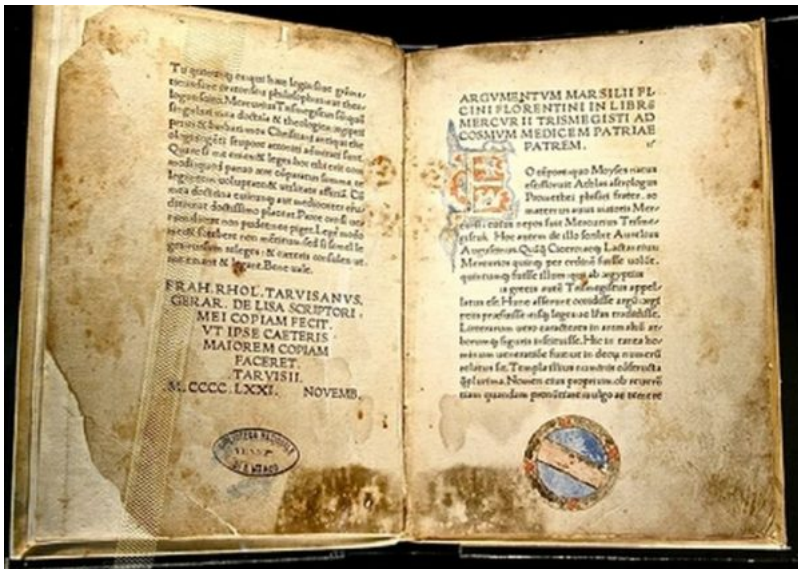 Tu quicunq; es qui hæc legis, siue gram̄a-
ticus siue orator seu philosophus aut theo-
logus scito. Mercurius Trismegistus sū quē
singulari mea doctrina & theologica ægyptii
prius & barbari mox Christiani antiqui the
ologi ingēti stupore attoniti admirati sunt.
Quare si me emes & legas hoc tibi erit com
modi quod paruo ære cōparatus summa te
legentem uoluptate & utilitate afficiā. Cū
mea doctrina cuicunq; aut mediocriter eru-
dito aut doctissimo placeat. Parce oro si ue-
rum dicere non pudet nec piget. Lege modo
me & fatebere non mentitum sed si semel le
ges rursum releges & cæteris consules ut
me emant & legant. Bene uale.
FRAN. RHOL. TARVISANVS.
GERAR. DE LISA SCRIPTORI.
MEI COPIAM FECIT.
VT IPSE CAETERIS
MAIOREM COPIAM
FACERET.
TARVISII.
M.CCCC.LXXI. NOVEMB.
BIBLIOTECA NAZIONALE
DI S. MARCO
ARGVMENTVM MARSILII FI-
CINI FLORENTINI IN LIBRŪ
MERCVRII TRISMEGISTI AD
COSMVM MEDICEM PATRIAE
PATREM.
E
O tēpore quo Moyses natus
est floruit Athlas astrologus
Promethei physici frater. ac
maternus auus maioris Mer-
curii. cuius nepos fuit Mercurius Trisme-
gistus. Hoc autem de illo scribit Aurelius
Augustinus. Quāq̄ Cicero atq; Lactantius
Mercurios quinq; per ordinē fuisse uolūt.
quintumq; fuisse illum qui ab ægyptiis
a græcis autē Trismegistus appel-
latus est. Hunc asserunt occidisse argū. ægy
ptiis præfuisse eisq; leges ac lr̄as tradidisse.
Litterarum uero caracteres in animaliū ar-
borumq; figuris instituisse. Hic in tanta ho
minum ueneratione fuit ut in deoȝ numerū
relatus sit. Templa illius numine cōstructa
q̄plurima. Nomen eius propriū ob reuerē
tiam quandam pronūtiare uulgo ac temere